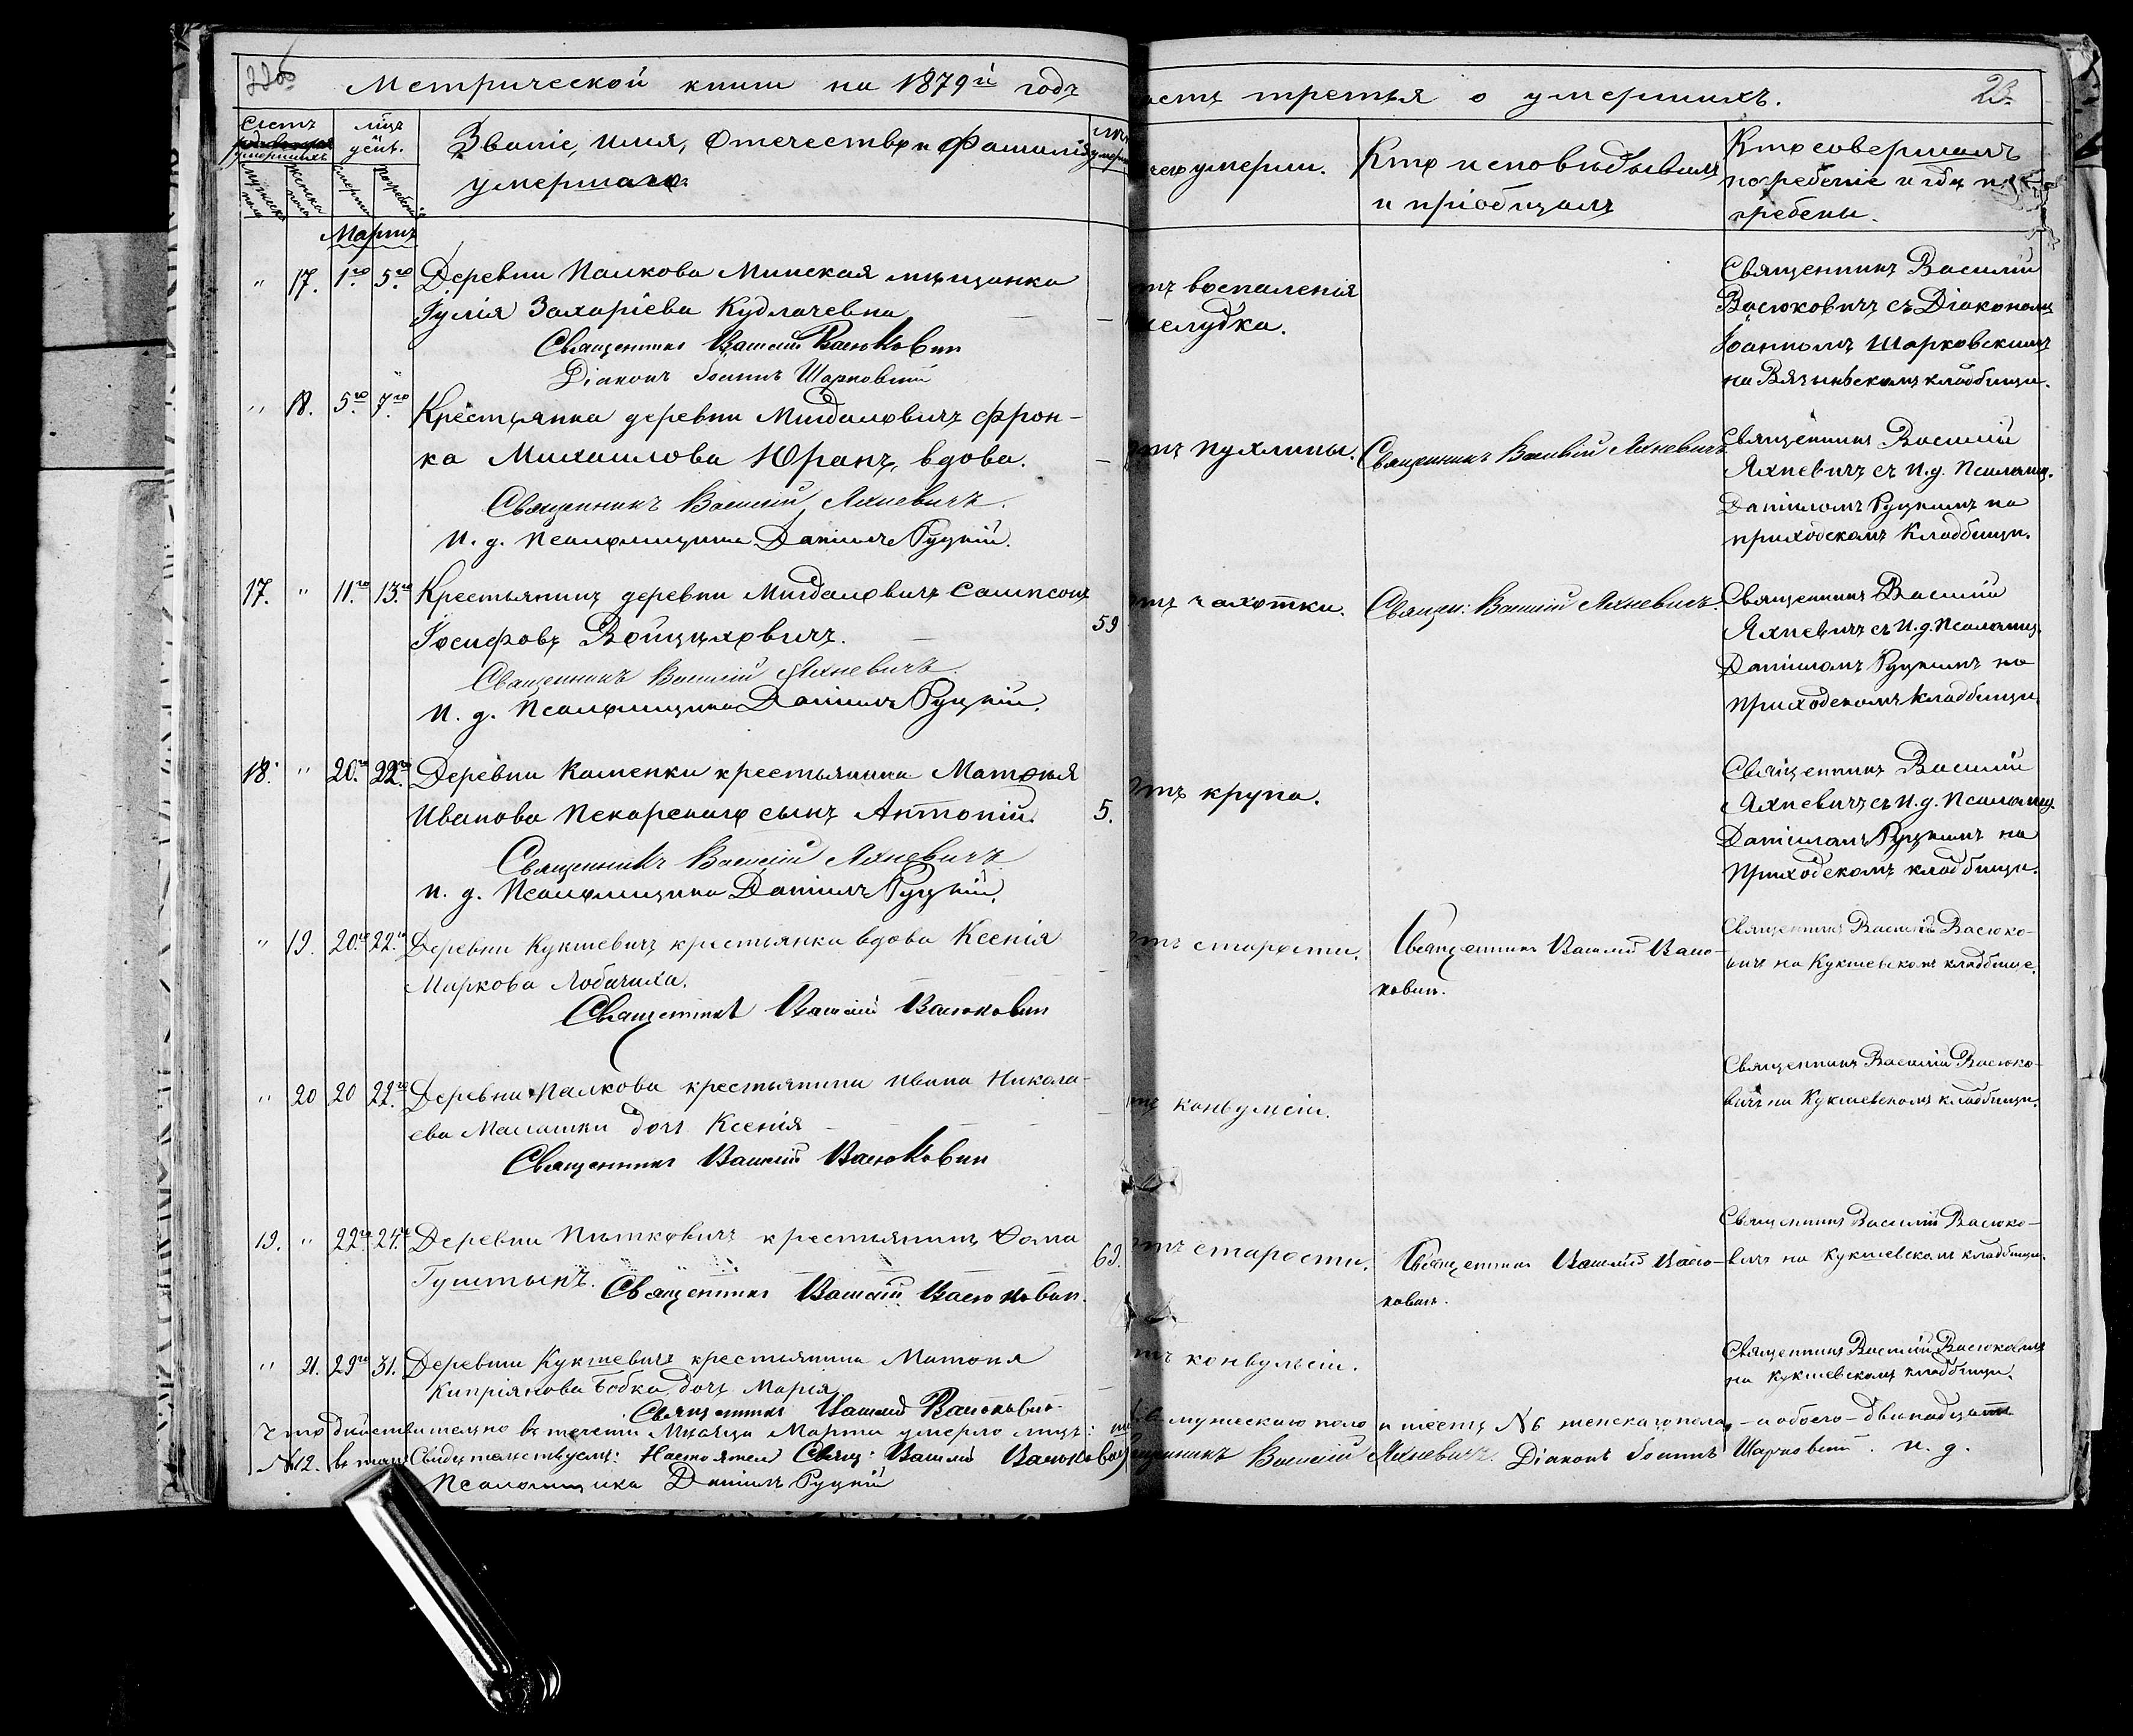 Метрической книги на 1879й годъ
часть третья о умершихъ.
23.
Счетъ умершихъ
Мужеска пола
Женска пола
Мѣсяцъ день.
смерти
погребенія
Званіе, имя, отечество и фамилія
умершаго.
Лѣта умерш
чего умерли.
Кто исповѣдывалъ
и пріобщалъ
Кто совершалъ
погребеніе и гдѣ по-
гребены.
Мартъ
" 17. 1го 5го Деревни Палкова Минская мѣщанка
Іулія Захаріева Кудлачевна
Священникъ Василій Васюковичъ
Діаконъ Іоаннъ Шарковскій
отъ воспаленія
желудка.
Священникъ Василій
Васюковичъ съ Діакономъ
Іоанномъ Шарковскимъ
на Вязыньскомъ кладбищѣ.
" 18. 5го 7го Крестьянка деревни Мигдаловичъ Фрон-
ка Михаилова Юранъ, вдова.
Священникъ Василій Яхневичъ.
И. д. Псаломщика Даніилъ Руцкій.
отъ пухлины.
Священникъ Василій Яхневичъ
Священникъ Василій
Яхневичъ съ И. д. Псаломщ.
Даніиломъ Руцкимъ на
приходскомъ кладбищѣ.
17. " 11го 13го Крестьянинъ деревни Мигдаловичъ Сампсонъ
Іосифовъ Войцѣховичъ. 59
Священникъ Василій Яхневичъ.
И. д. Псаломщика Даніилъ Руцкій.
отъ чахотки.
Священ: Василій Яхневичъ.
Священникъ Василій
Яхневичъ съ И. д. Псаломщ.
Даніиломъ Руцкимъ на
приходскомъ кладбищѣ.
18. " 20го 22го Деревни Каменки крестьянина Матѳея
Иванова Пекарскаго сынъ Антоній. 5.
Священникъ Василій Яхневичъ
И. д. Псаломщика Даніилъ Руцкій.
отъ крупа.
Священникъ Василій
Яхневичъ съ И. д. Псаломщ.
Даніиломъ Руцкимъ на
приходскомъ кладбищѣ.
" 19. 20го 22го Деревни Кукшевичъ крестьянка вдова Ксенія
Маркова Лобачиха.
Священникъ Василій Васюковичъ
отъ старости.
Священникъ Василій Васю-
ковичъ.
Священникъ Василій Васюко-
вичъ на Кукшевскомъ кладбище.
" 20 20 22го Деревни Палкова крестьянина Ивана Никола-
ева Малашки дочь Ксенія
Священникъ Василій Васюковичъ
отъ конвульсіи.
Священникъ Василій Васюко-
вичъ на Кукшевскомъ кладбищѣ.
19. " 22го 24го Деревни Пѣтковичъ крестьянинъ Ѳома
Гуштынъ. 69.
Священникъ Василій Васюковичъ.
отъ старости.
Священникъ Василій Васю-
ковичъ.
Священникъ Василій Васюко-
вичъ на Кукшевскомъ кладбищѣ.
" 21. 29го 31. Деревни Кукшевичъ крестьянина Матѳея
Кипріянова Бобка дочь Марія
Священникъ Василій Васюковичъ
отъ конвульсіи.
Священникъ Василій Васюковичъ
на Кукшевскомъ кладбищѣ.
Что дѣйствительно въ теченіи Мѣсяца Марта умерло лицъ: мужескаго пола и шесть №6 женскаго пола, – а обоего – двѣнадцать
№12. въ томъ свидѣтельствуемъ: Настоятель Свящ: Василій Васюковичъ Священникъ Василій Яхневичъ. Діаконъ Іоаннъ Шарковскій. И. д.
Псаломщика Даніилъ Руцкій